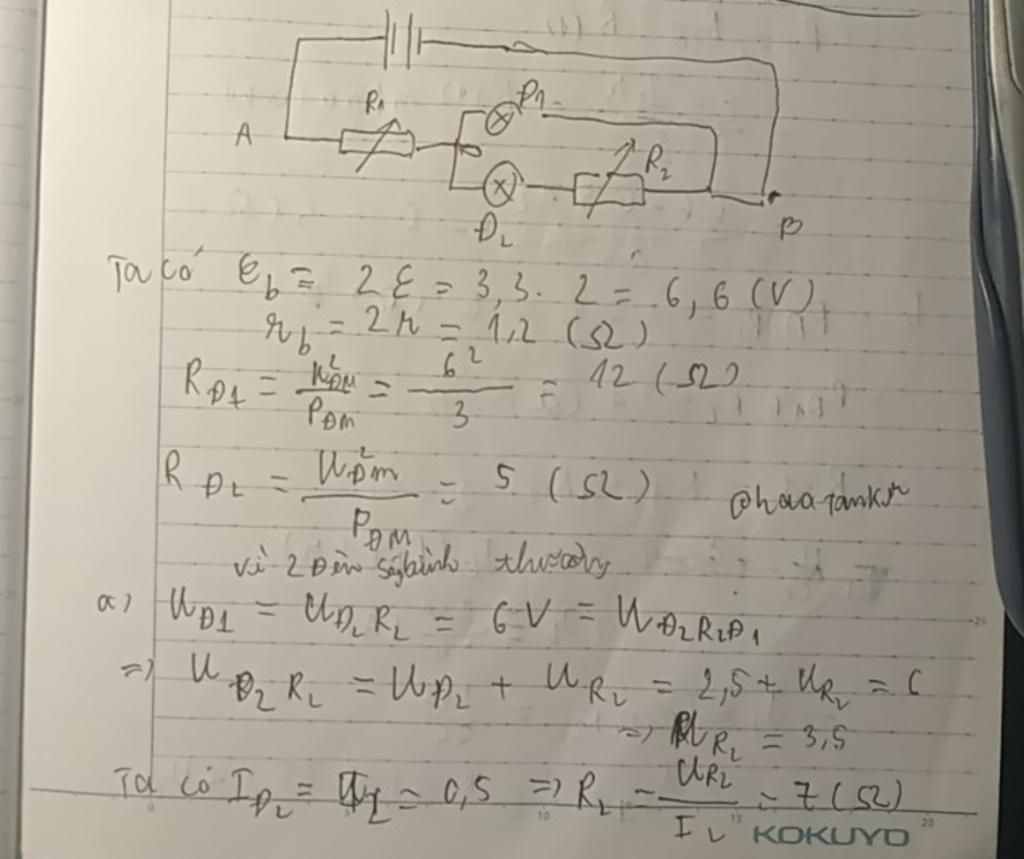 R₁
Đ₁
A
R₂
Đ₂
B
Ta có ε_b = 2ε = 3,3 . 2 = 6,6 (V)
r_b = 2r = 1,2 (Ω)
R_Đ1 = U²_ĐM / P_ĐM = 6² / 3 = 12 (Ω)
R_Đ2 = U²_Đm / P_ĐM = 5 (Ω)
@haatanksr
vì 2 Đèn sáng bình thường
a) U_Đ1 = U_Đ2R2 = 6V = U_Đ2R2Đ1
=> U_Đ2R2 = U_Đ2 + U_R2 = 2,5 + U_R2 = 6
=> U_R2 = 3,5
Ta có I_Đ2 = I_2 = 0,5 => R_2 = U_R2 / I_2 = 7 (Ω)
25
10
15
20
KOKUYO